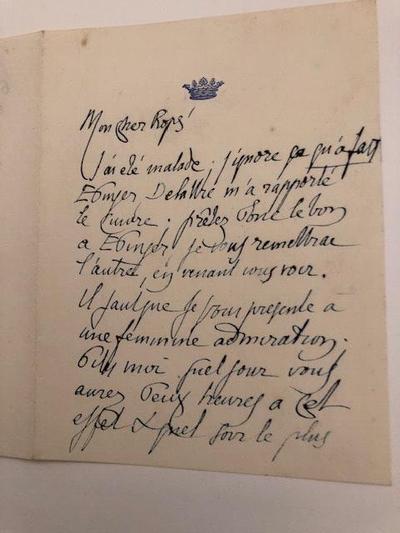 Mon cher Rops
J'ai été malade. j'ignore ce qu'a fait
Evinger Delattre m'a rapporté
le cuivre. prêtez donc le bon
a Evinger je vous remettrai
l'autre en venant vous voir.
Il faut que je vous presente à
une feminine admiration.
Dites moi quel jour vous
aurez deux heures a cet
effet & quel jour le plus